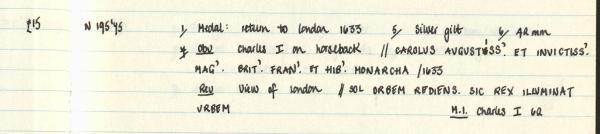 £15 N 195'45 1/ Medal: return to London 1633 5/ Silver gilt 6/ 42 mm
7/ Obv Charles I on horseback // CAROLUS AUGUSTISS'. ET INVICTISS'.
MAG'. BRIT'. FRAN'. ET HIB'. MONARCHA / 1633
Rev View of London // SOL ORBEM REDIENS. SIC REX ILLUMINAT
VRBEM M.I. Charles I 62